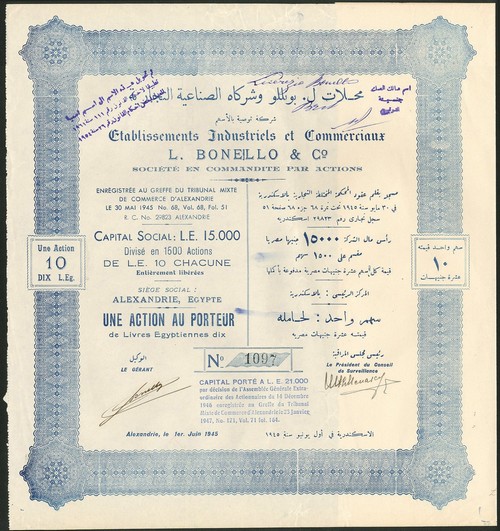 محلات ل. بونللو وشركاه الصناعية
شركة توصية بالأسهم
Etablissements Industriels et Commerciaux
L. BONELLO & Co
SOCIÉTÉ EN COMMANDITE PAR ACTIONS
ENREGISTRÉE AU GREFFE DU TRIBUNAL MIXTE
DE COMMERCE D'ALEXANDRIE
LE 30 MAI 1945 No. 68, Vol. 68, Fol. 51
R. C. No. 29823 ALEXANDRIE
مسجل بقلم عقود المحكمة المختلطة التجارية بالاسكندرية
في ٣٠ مايو سنة ١٩٤٥ تحت نمرة ٦٨ جزء ٦٨ صفحة ٥١
سجل تجارى رقم ٢٩٨٢٣ اسكندرية
CAPITAL SOCIAL: L.E. 15.000
Divisé en 1500 Actions
DE L.E. 10 CHACUNE
Entièrement libérées
رأس مال الشركة ١٥٠٠٠ جنيها مصريا
مقسم على ١٥٠٠ سهم
قيمة كل اسهم عشرة جنيهات مصرية مدفوعة بأكملها
Une Action
10
DIX L.Eg.
سهم واحد قيمته
١٠
عشرة جنيهات
SIÈGE SOCIAL :
ALEXANDRIE, EGYPTE
المركز الرئيسى : بالاسكندرية
UNE ACTION AU PORTEUR
de Livres Egyptiennes dix
سهم واحد : لحامله
قيمته عشرة جنيهات مصرية
الوكيل
LE GÉRANT
No 1097
رئيس مجلس المراقبة
Le Président du Conseil
de Surveillance
CAPITAL PORTÉ A L. E. 21.000
par décision de l'Assemblée Générale Extra-
ordinaire des Actionnaires du 14 Décembre
1946 enregistrée au Greffe du Tribunal
Mixte de Commerce d'Alexandrie le 23 Janvier
1947, No. 121, Vol. 71 fol. 164.
Alexandrie, le 1er. Juin 1945
الاسكندرية فى أول يونيو سنة ١٩٤٥